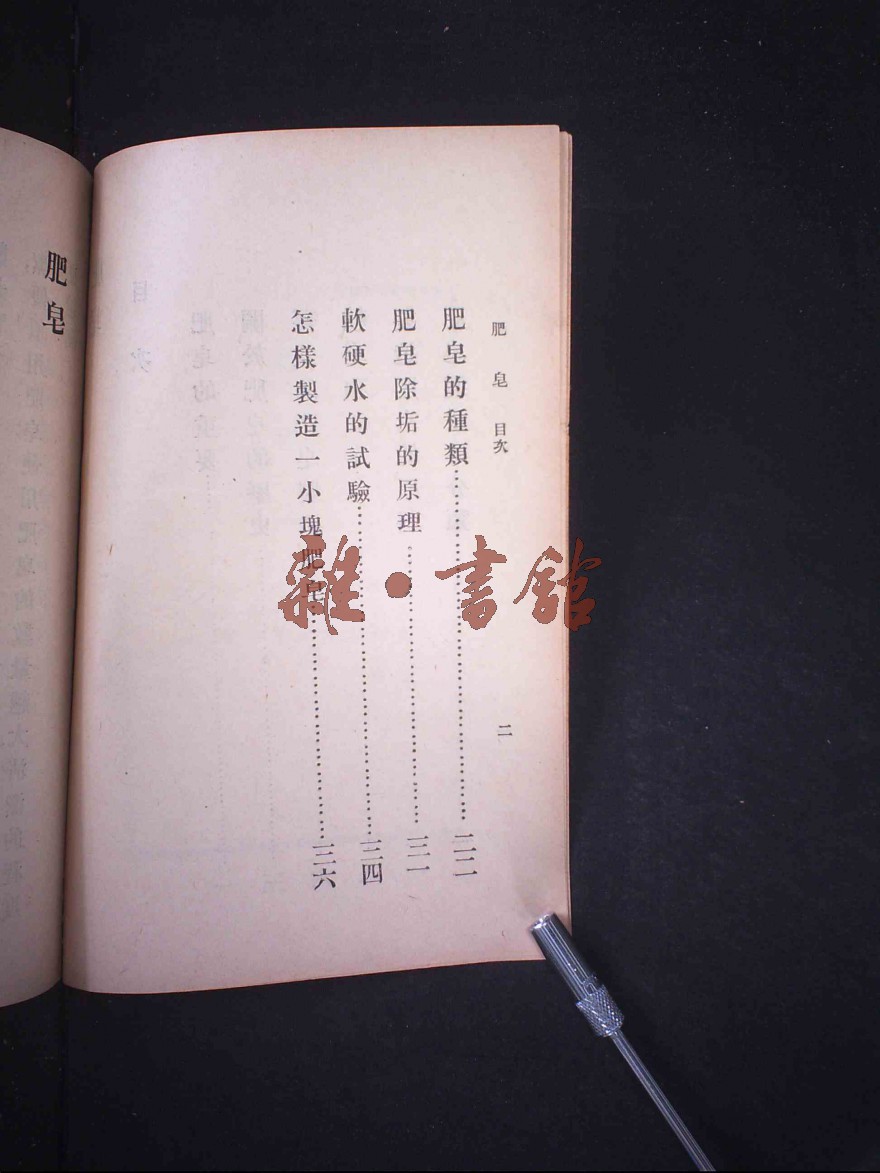 肥皂 目次 二
肥皂的種類……二二
肥皂除垢的原理……三一
軟硬水的試驗……三四
怎樣製造一小塊肥皂……三六
肥皂
雜·書館